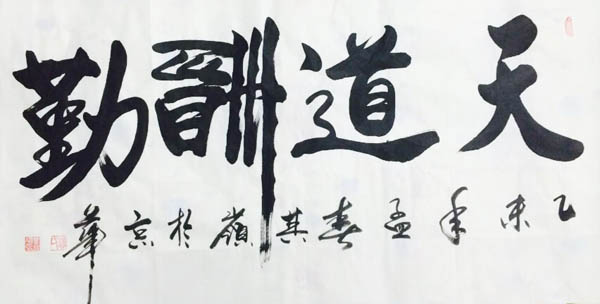 天道酬勤
乙未年孟春其嶺於京華